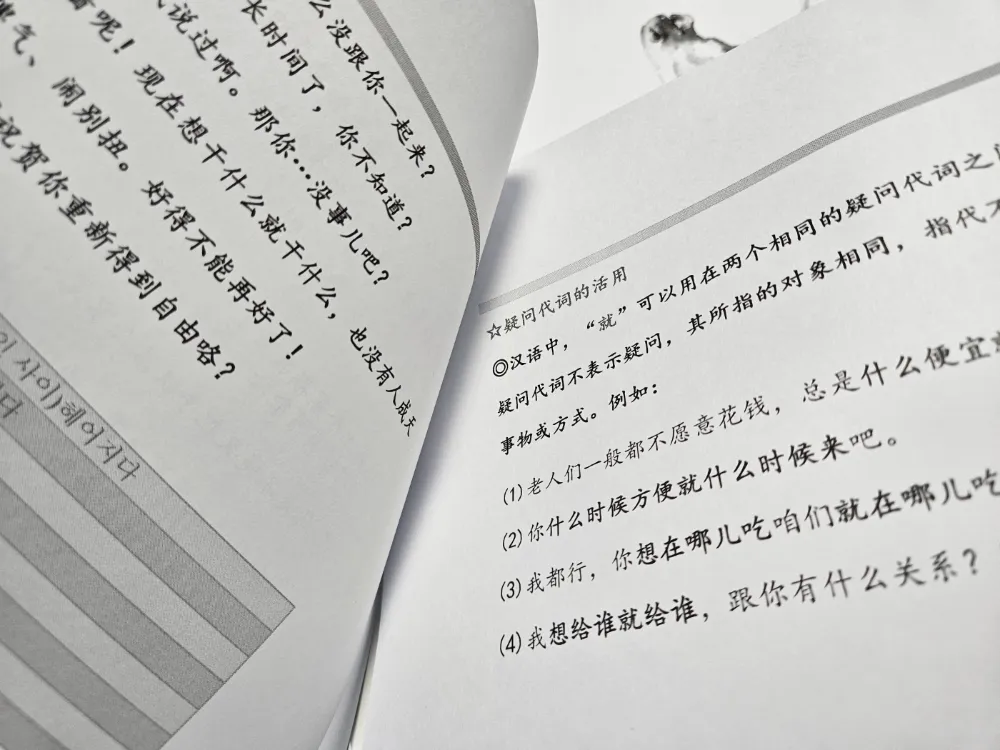 么没跟你一起来？
长时间了，你不知道？
说过啊。那你…没事儿吧？
呢！现在想干什么就干什么，也没有人成天
气、闹别扭。好得不能再好了！
祝贺你重新得到自由咯？
사이)헤어지다
다
☆疑问代词的活用
◎汉语中，“就”可以用在两个相同的疑问代词之
疑问代词不表示疑问，其所指的对象相同，指代不
事物或方式。例如：
(1)老人们一般都不愿意花钱，总是什么便宜
(2)你什么时候方便就什么时候来吧。
(3)我都行，你想在哪儿吃咱们就在哪儿吃
(4)我想给谁就给谁，跟你有什么关系？